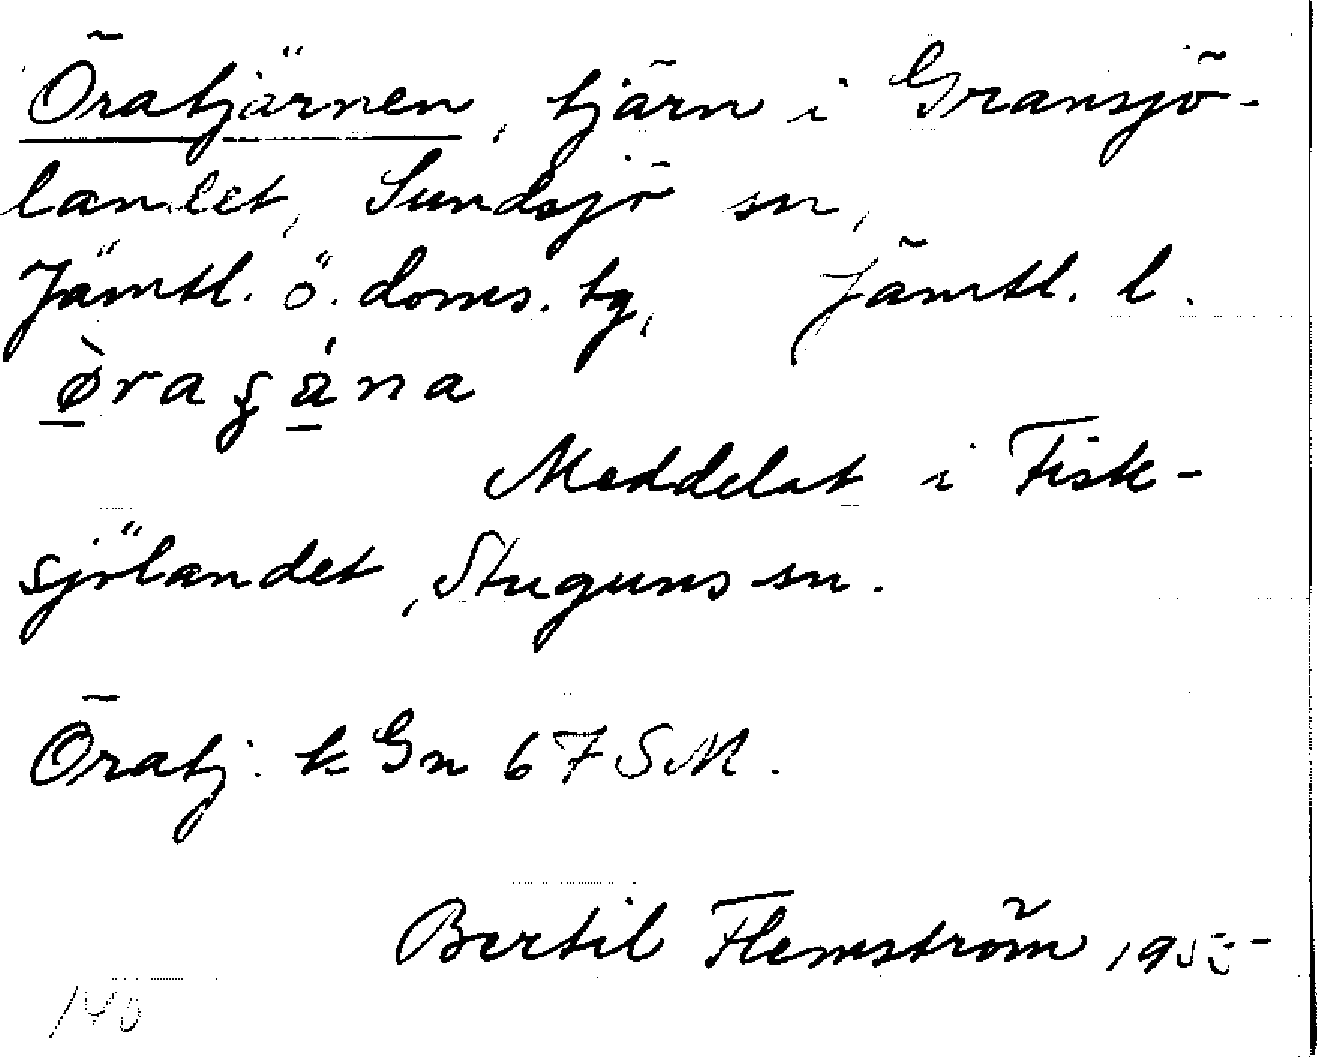 Öratjärnen, tjärn i Gransjö-
landet, Sundsjö sn,
Jämtl. ö. doms. tg, Jämtl. l.
Meddelat i Fisk-
sjölandet, Stuguns sn.
Öratj. k Gn 67 SM.
Bertil Flemström 1955
140